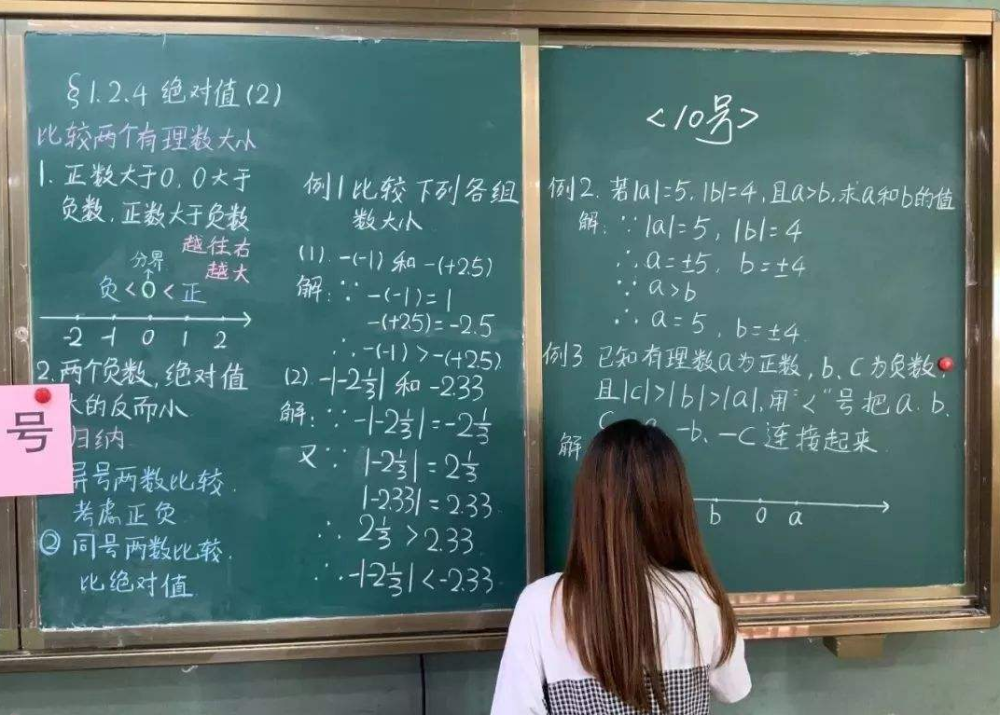 §1.2.4 绝对值(2)
比较两个有理数大小
1. 正数大于0, 0大于
负数. 正数大于负数
越往右
越大
分界
负<0<正
-2 -1 0 1 2
2. 两个负数, 绝对值
大的反而小
归纳
异号两数比较.
考虑正负
② 同号两数比较.
比绝对值
号
例1 比较下列各组
数大小
(1). -(-1) 和 -(+2.5)
解: ∵ -(-1) = 1
-(+2.5) = -2.5
∴ -(-1) > -(+2.5)
(2). -|-2⅓| 和 -2.33
解: ∵ -|-2⅓| = -2⅓
又∵ |-2⅓| = 2⅓
|-2.33| = 2.33
∴ 2⅓ > 2.33
∴ -|-2⅓| < -2.33
<10号>
例2. 若|a|=5, |b|=4, 且a>b, 求a和b的值
解: ∵ |a|=5, |b|=4
∴ a=±5, b=±4
∵ a>b
∴ a=5, b=±4
例3 已知有理数a为正数, b、c为负数,
且|c|>|b|>|a|, 用"<"号把a.b.
-b、-c连接起来
解
b 0 a